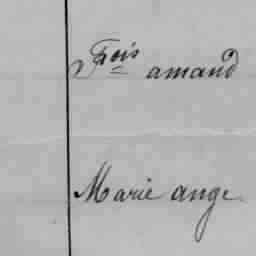 Fçois amand
Marie ange